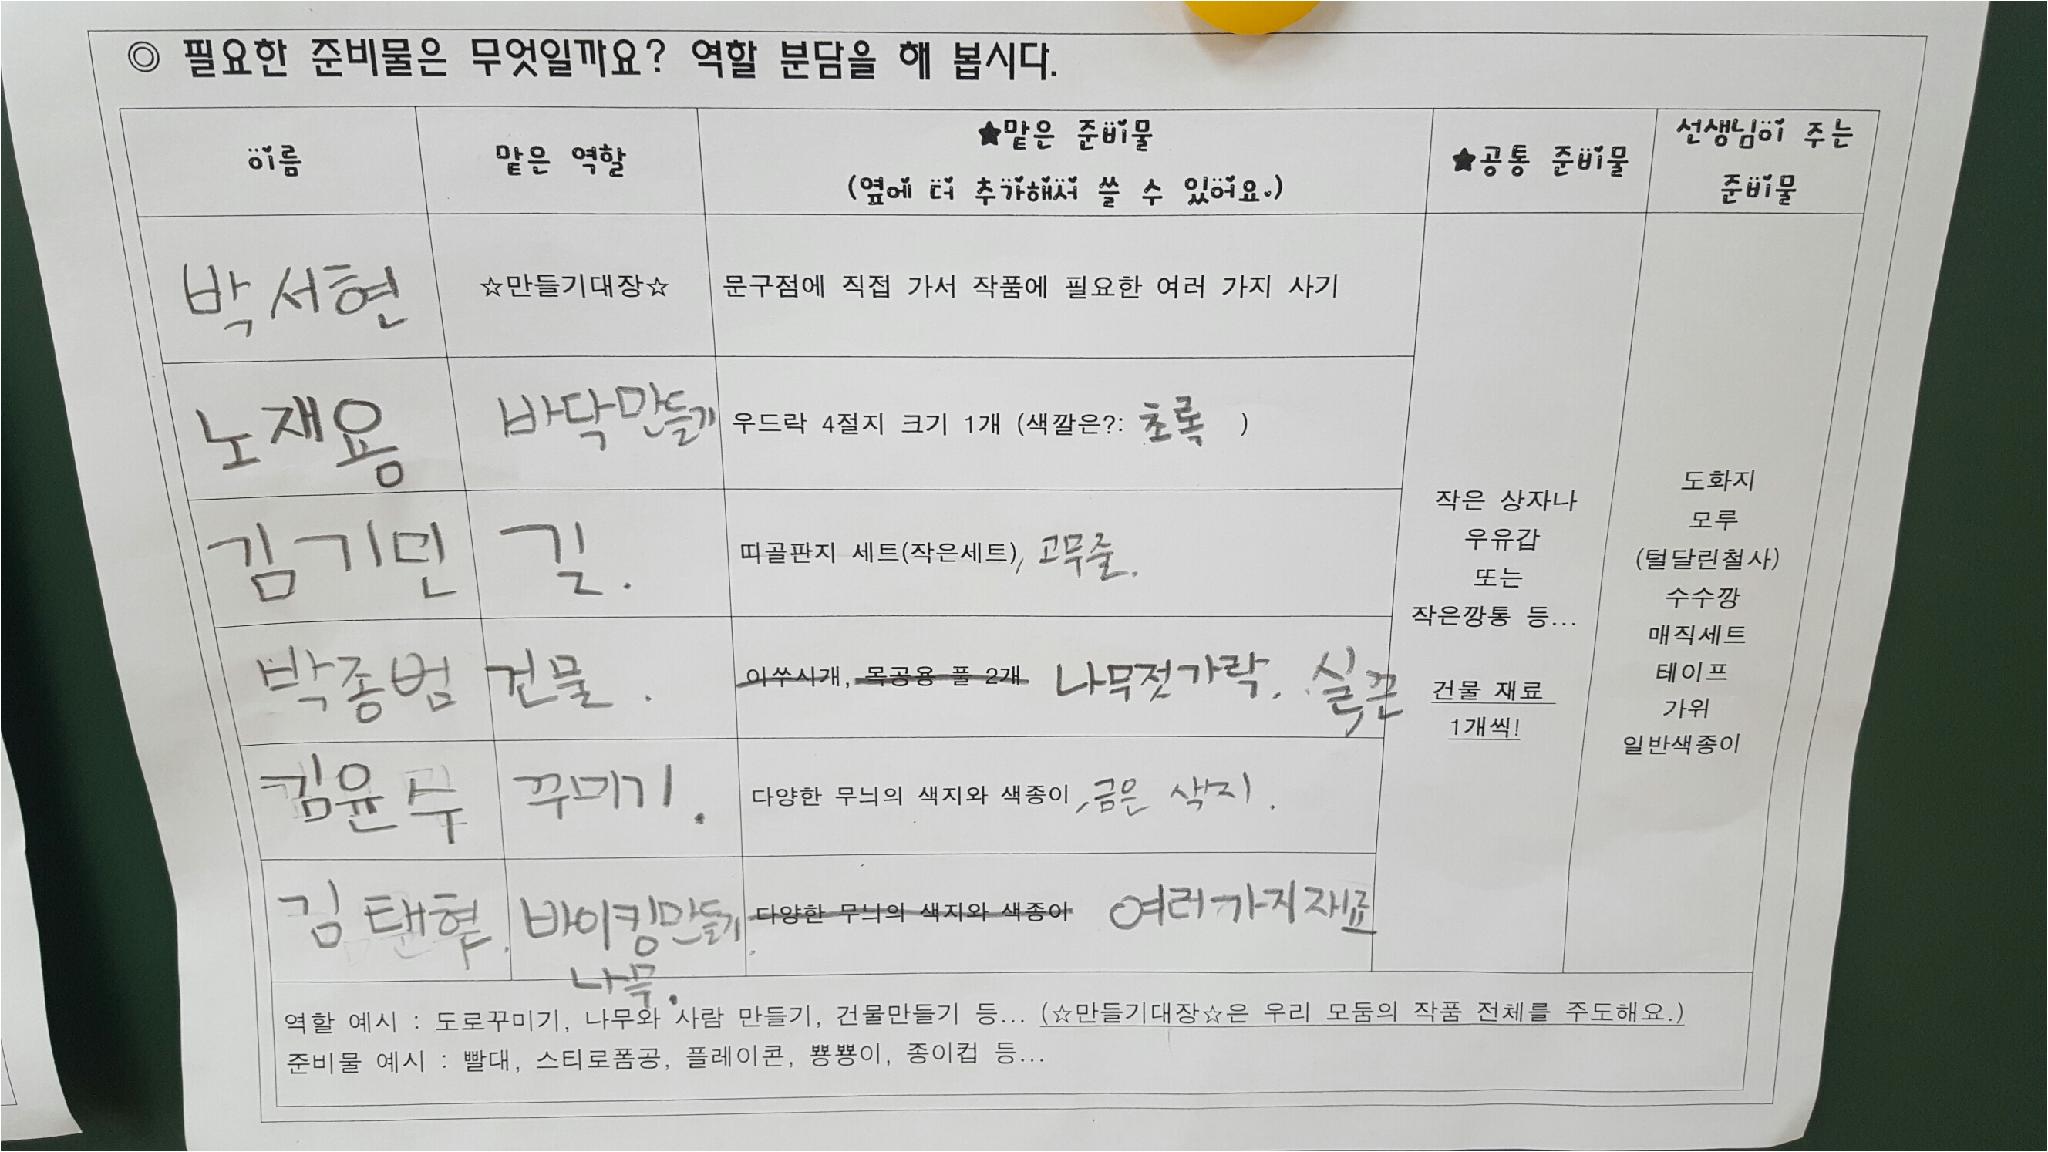 ◎ 필요한 준비물은 무엇일까요? 역할 분담을 해 봅시다.
이름
맡은 역할
★맡은 준비물
(옆에 더 추가해서 쓸 수 있어요.)
★공통 준비물
선생님이 주는
준비물
박서현
☆만들기대장☆
문구점에 직접 가서 작품에 필요한 여러 가지 사기
노재용
바닥만들기
우드락 4절지 크기 1개 (색깔은?: 초록 )
김기민
길.
띠골판지 세트(작은세트), 고무줄.
박종범
건물.
이쑤시개, 목공용 풀 2개 나무젓가락, 실, 끈
김윤수
꾸미기.
다양한 무늬의 색지와 색종이, 금은 색지.
김태혁.
바이킹만들기.
나무.
다양한 무늬의 색지와 색종이 여러가지재료
작은 상자나
우유갑
또는
작은깡통 등...
건물 재료
1개씩!
도화지
모루
(털달린철사)
수수깡
매직세트
테이프
가위
일반색종이
역할 예시 : 도로꾸미기, 나무와 사람 만들기, 건물만들기 등... (☆만들기대장☆은 우리 모둠의 작품 전체를 주도해요.)
준비물 예시 : 빨대, 스티로폼공, 플레이콘, 뿅뿅이, 종이컵 등...